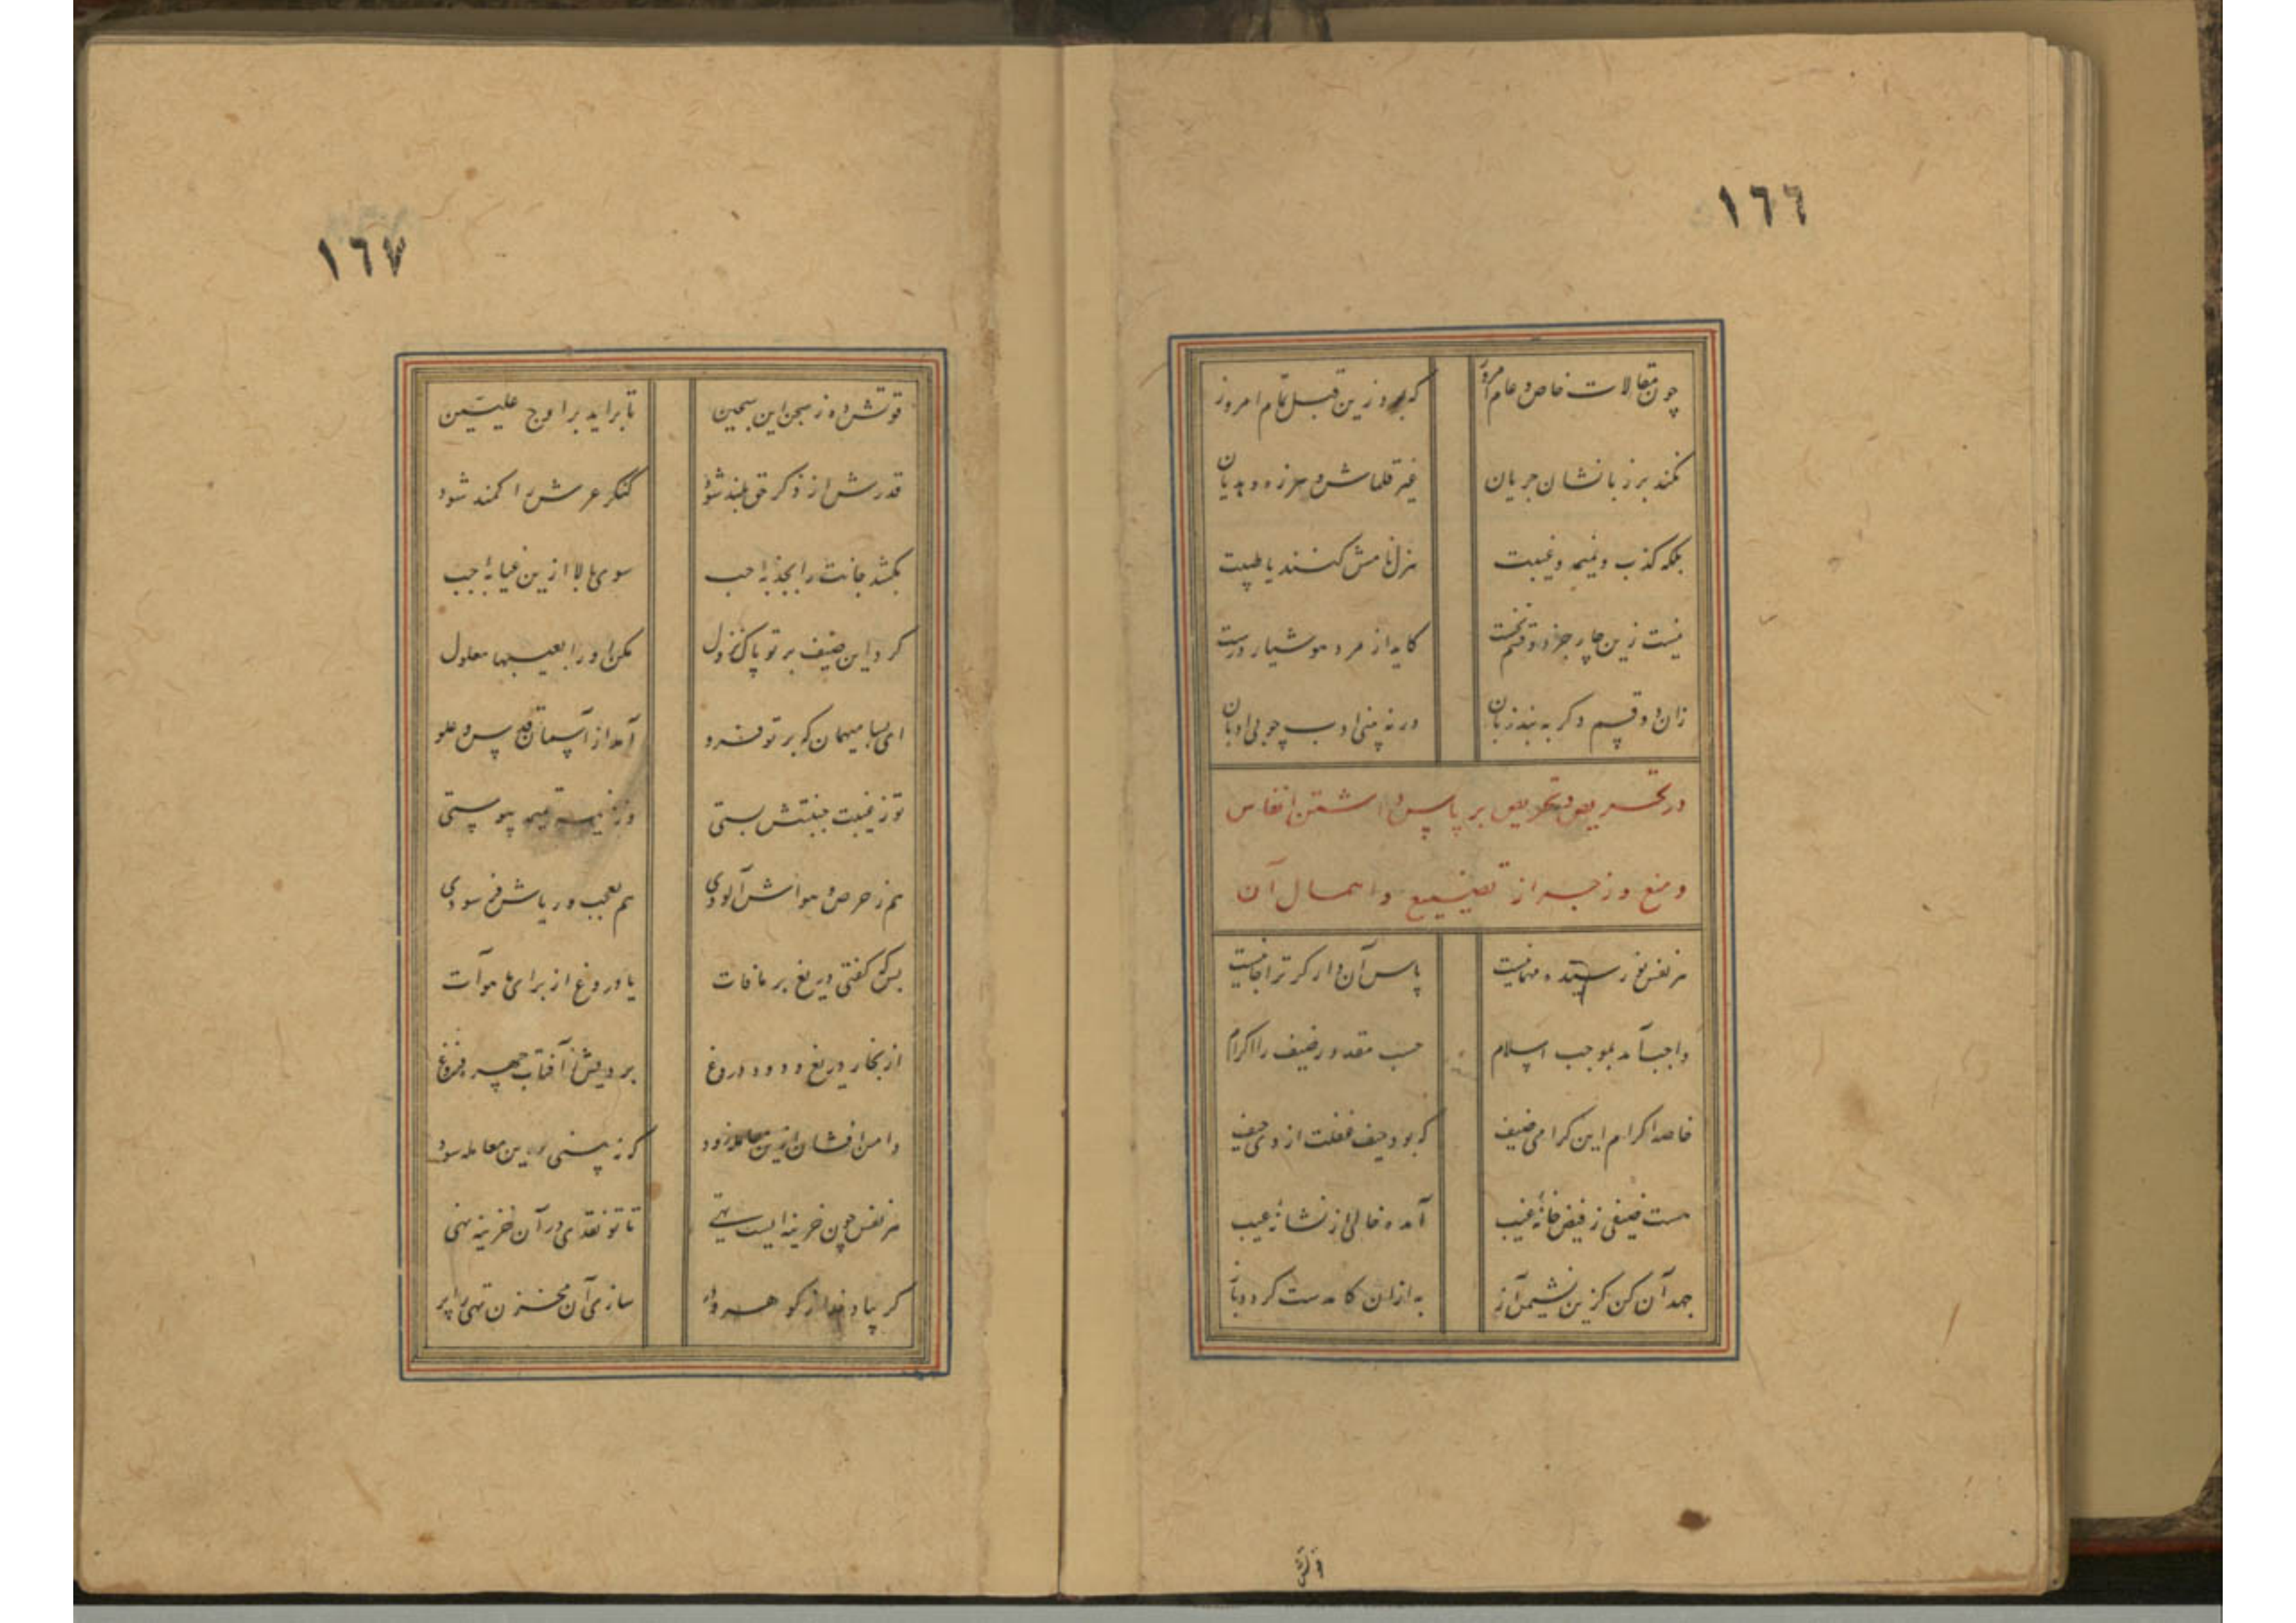 ١٦٦
چون مقالات خاص و عام امروز
که بود زین قبل تمام امروز
نکند بر زبانشان جریان
غیر قلماش و هرزه و هذیان
بلکه کذب و نمیمه و غیبت
هزل نامش کنند یا طیبت
نیست زین چار جز دو قسم نخست
کاید از مرد هوشیار درست
زان دو قسم دگر به بند زبان
ورنه بینی ادب چو بی ادبان
در تحریص و تحریض بر پاس داشتن انفاس
و منع و زجر از تضییع و اهمال آن
هر نفس نو رسیده مهمانیست
پاس آن دار گر ترا جانیست
واجب آمد بموجب اسلام
حسب مقدور ضیف را اکرام
خاصه اکرام این گرامی ضیف
که بود حیف غفلت از وی حیف
هست ضیفی ز فیض خانه غیب
آمده خالی از نشانه عیب
جهد آن کن کزین نشیمن آز
به ازان کامدست گردد باز
قوتش
١٦٧
قوتش ده ز سجن این سجین
تا براید بر اوج علیین
قدرش از ذکر حق بلند شود
کنگر عرش را کمند شود
بکشد جانت را بجذبه احب
سوی بالا ازین غیابه جب
کرد این ضیف بر تو پاک نزول
مکن او را بعیبها معلول
ای بسا میهمان که بر تو فرو
آمد از آسمان قدس و علو
تو ز غیبت جنبتش بستی
وز نمیمه پیوستی
هم ز حرص و هواش آلودی
هم بعجب و ریاش فرسودی
بس که گفتی دریغ بر مافات
یا دروغ از برای ما هوآت
از بخار دریغ و دود دروغ
بردیش ز آفتاب چهره فروغ
دامن افشان ازین معامله زود
که نه بینی درین معامله سود
هر نفس چون خزینه ایست تهی
تا تو نقدی در آن خزینه نهی
گر بیاد خدا ز گوهر و در
سازی آن مخزن تهی را پر